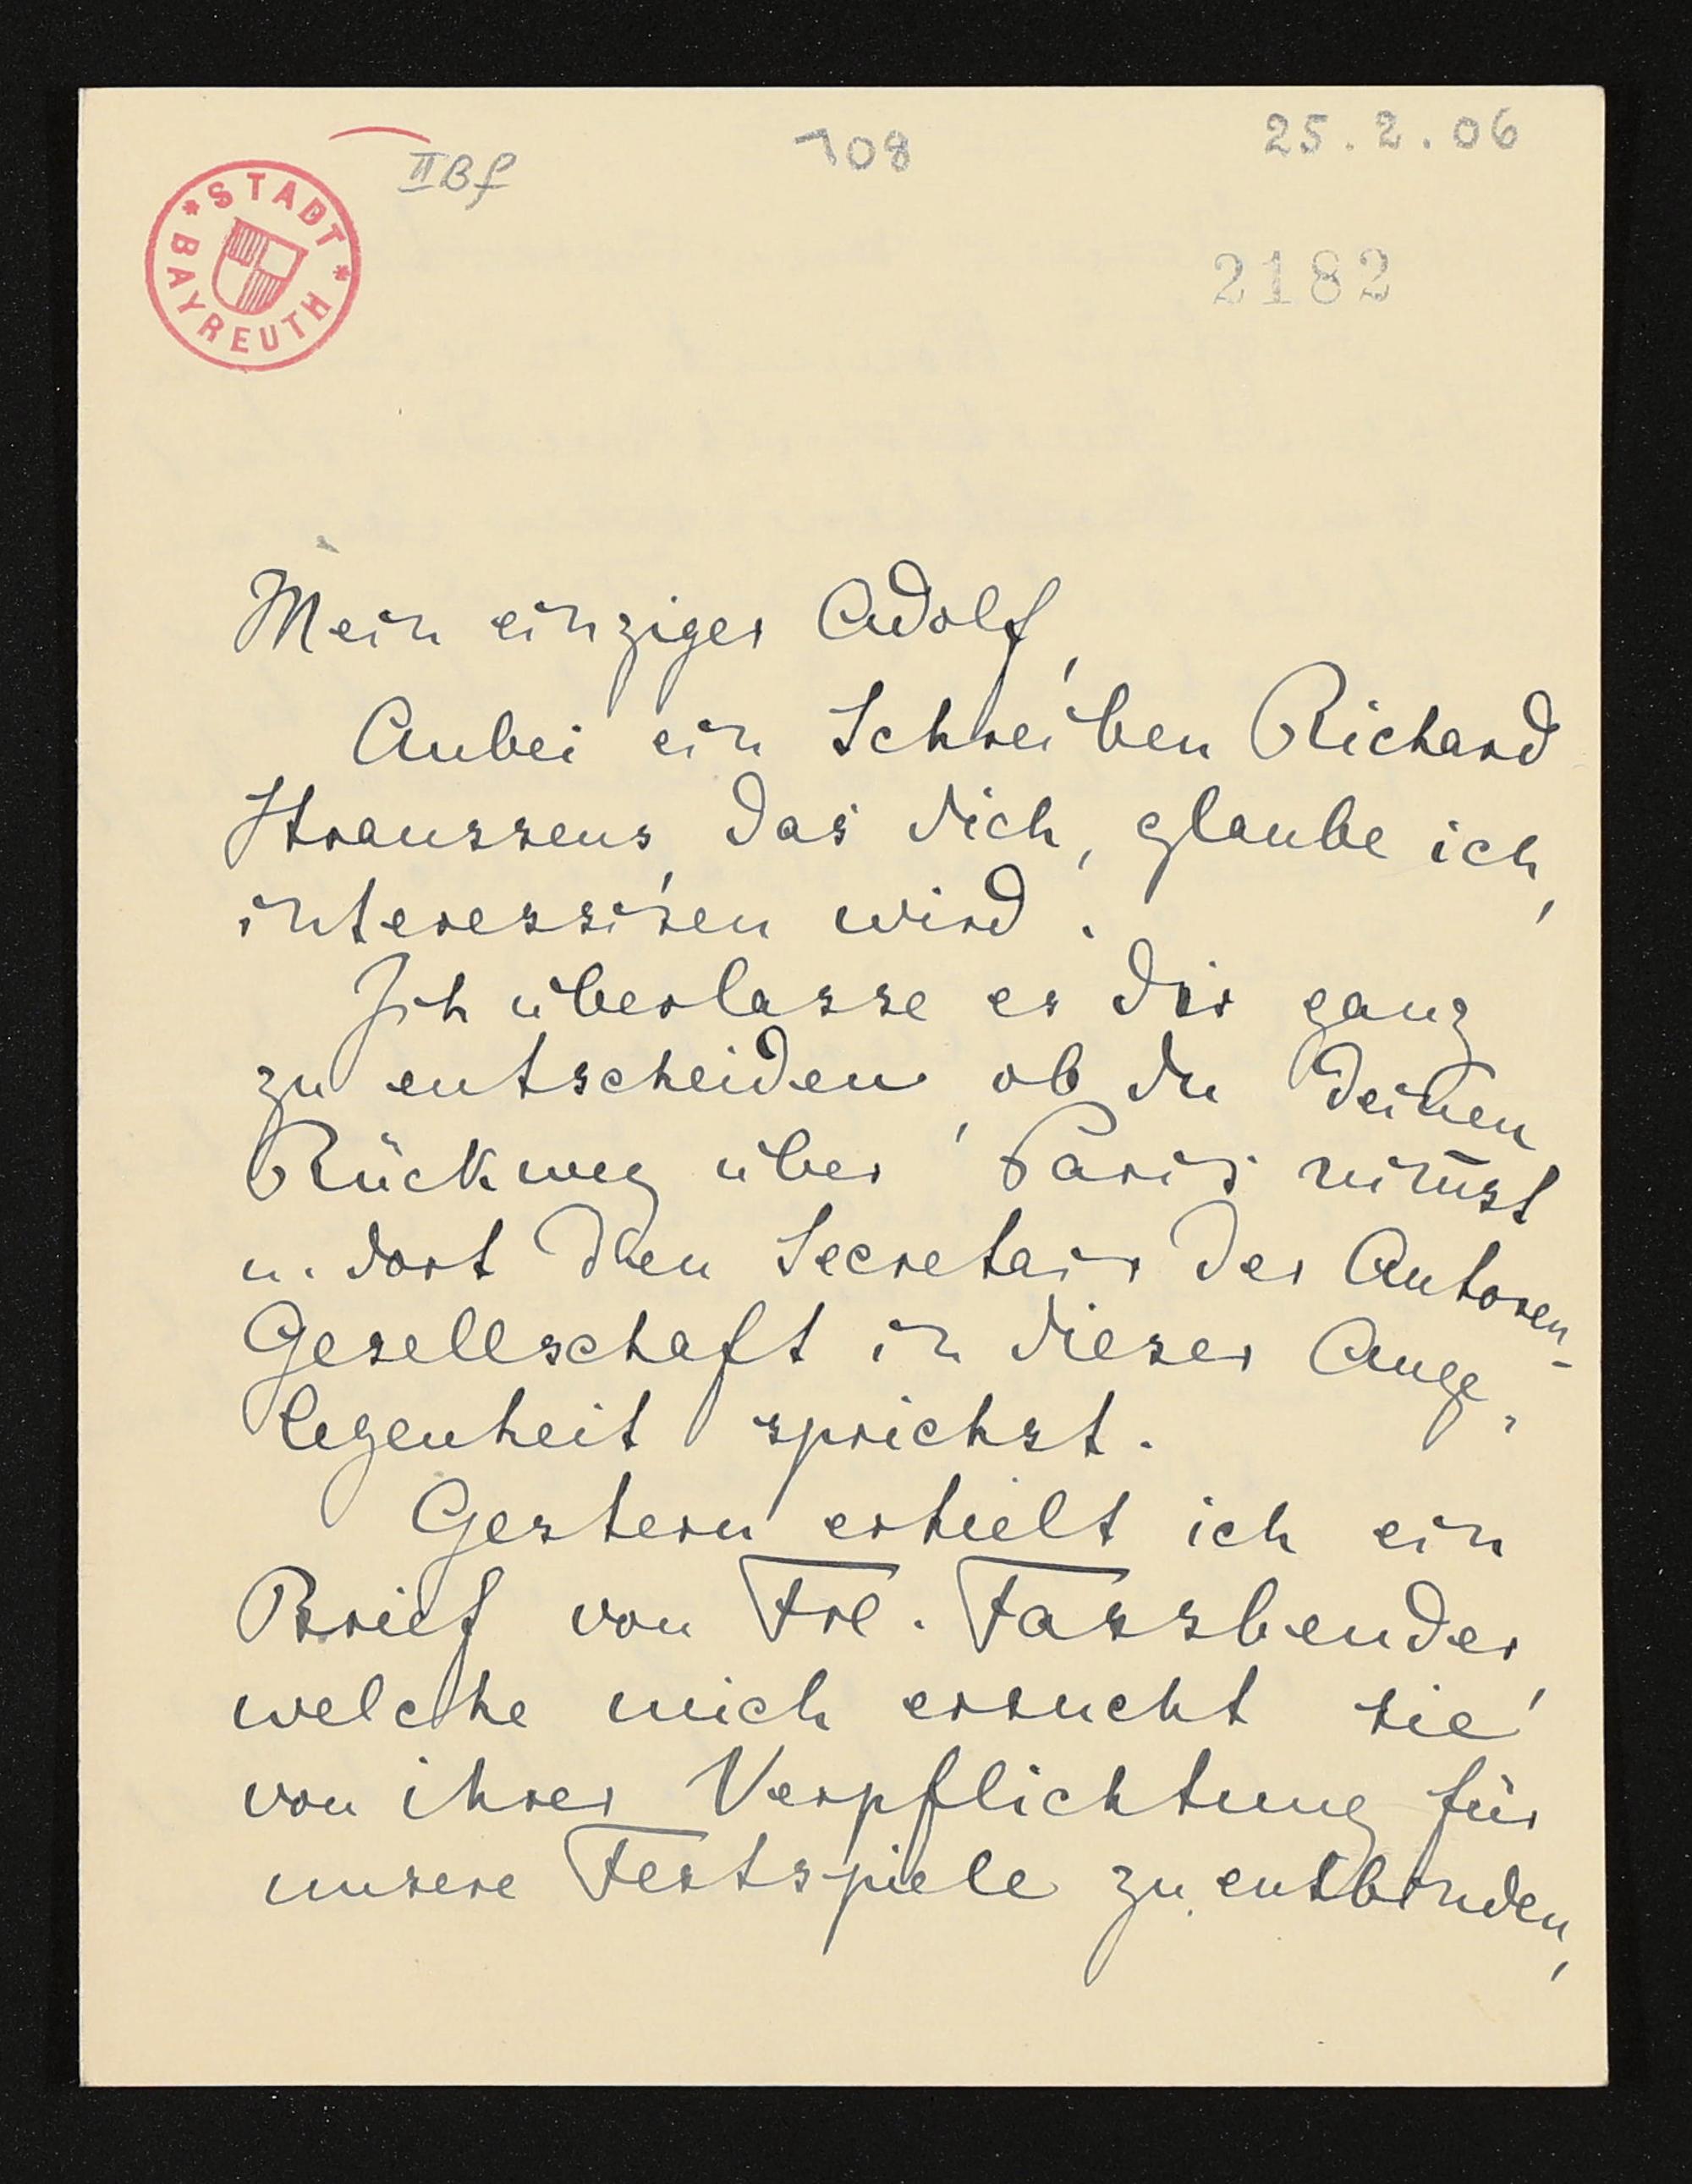 IIBf
108
25.2.06
* STADT * BAYREUTH
2182
Mein einziger Adolf,
Anbei ein Schreiben Richard
Straussens, das dich, glaube ich,
interessiren wird.
Ich überlasse es dir ganz
zu entscheiden, ob du deinen
Rückweg über Paris nim̅st
u. dort den Secretair der Autoren-
Gesellschaft in dieser Ange-
legenheit sprichst.
Gestern erhielt ich ein
Brief von Frl. Fassbender,
welche mich ersucht sie
von ihrer Verpflichtung für
unsere Festspiele zu entbinden,